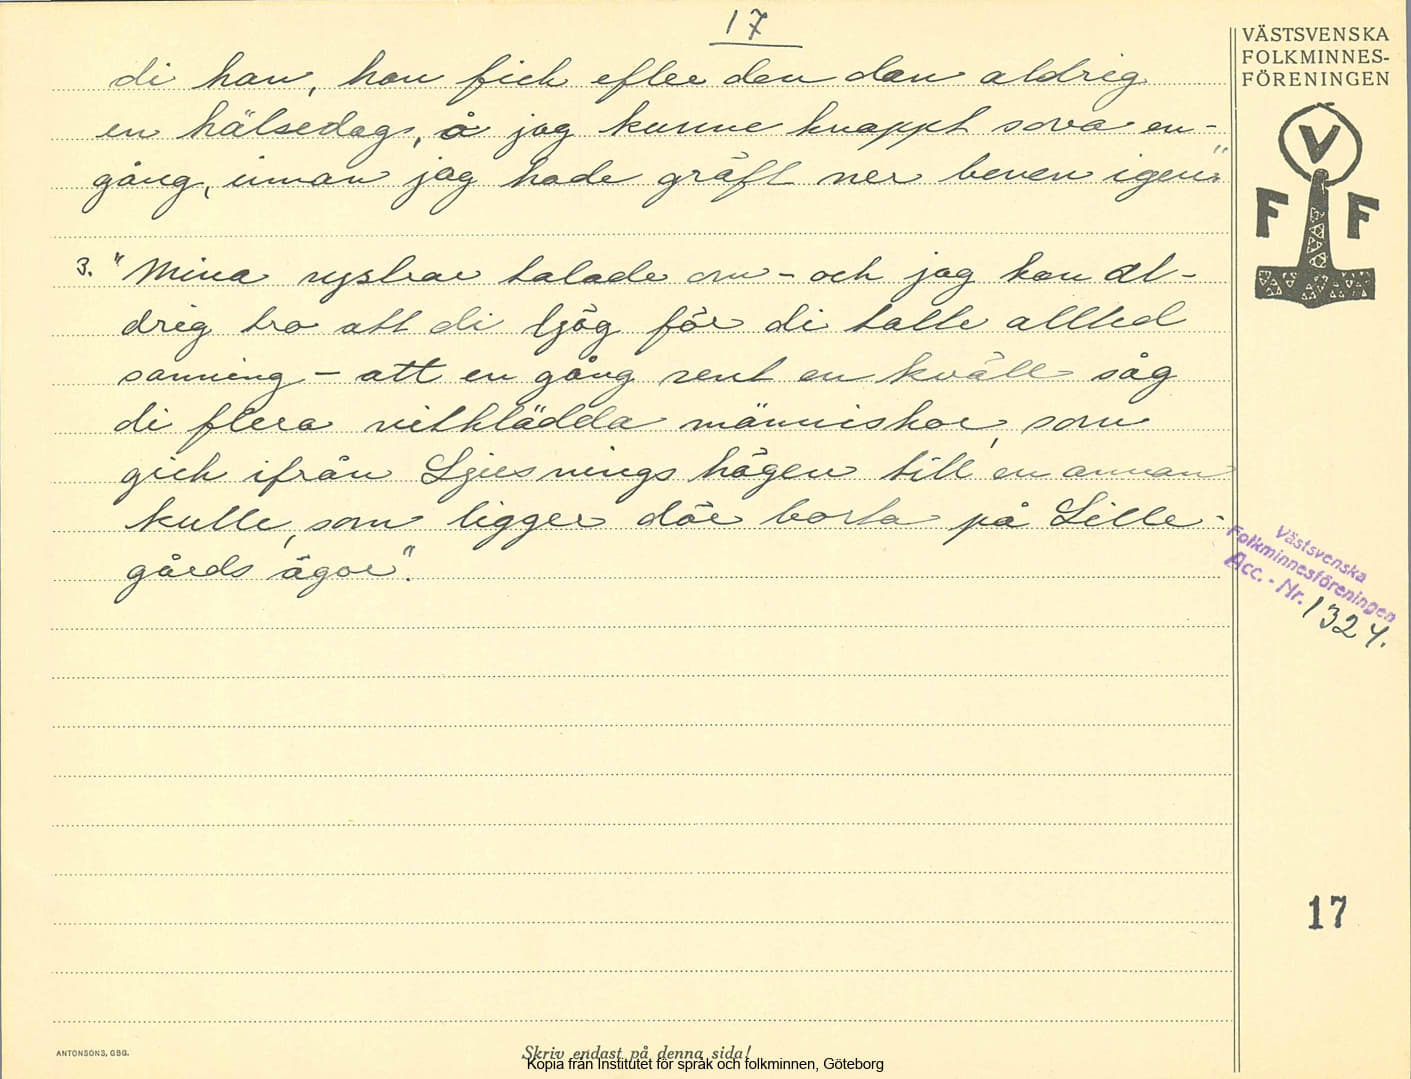 17
di han, han fick efter den dan aldrig
en hälsedag, å jag kunne knappt sova en-
gång, innan jag hade gräft ner benen igen"
3. "Mina systrar talade om - och jag kan al-
drig tro att di ljög för di talte alltid
sanning - att en gång sent en kväll såg
di flera vitklädda människor, som
gick ifrån Ljusnings högen till en annan
kulle, som ligger där borta på Lille-
gårds ägor".
VÄSTSVENSKA
FOLKMINNES-
FÖRENINGEN
V
F F
Västsvenska
Folkminnesföreningen
Acc. - Nr. 1324.
17
ANTONSONS, GBG.
Skriv endast på denna sida!
Kopia från Institutet för språk och folkminnen, Göteborg